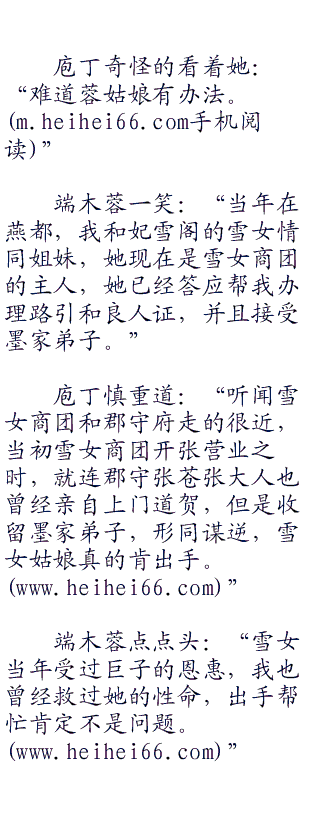 庖丁奇怪的看着她：
“难道蓉姑娘有办法。
(m.heihei66.com手机阅
读)”
端木蓉一笑：“当年在
燕都，我和妃雪阁的雪女情
同姐妹，她现在是雪女商团
的主人，她已经答应帮我办
理路引和良人证，并且接受
墨家弟子。”
庖丁慎重道：“听闻雪
女商团和郡守府走的很近，
当初雪女商团开张营业之
时，就连郡守张苍张大人也
曾经亲自上门道贺，但是收
留墨家弟子，形同谋逆，雪
女姑娘真的肯出手。
(www.heihei66.com)”
端木蓉点点头：“雪女
当年受过巨子的恩惠，我也
曾经救过她的性命，出手帮
忙肯定不是问题。
(www.heihei66.com)”